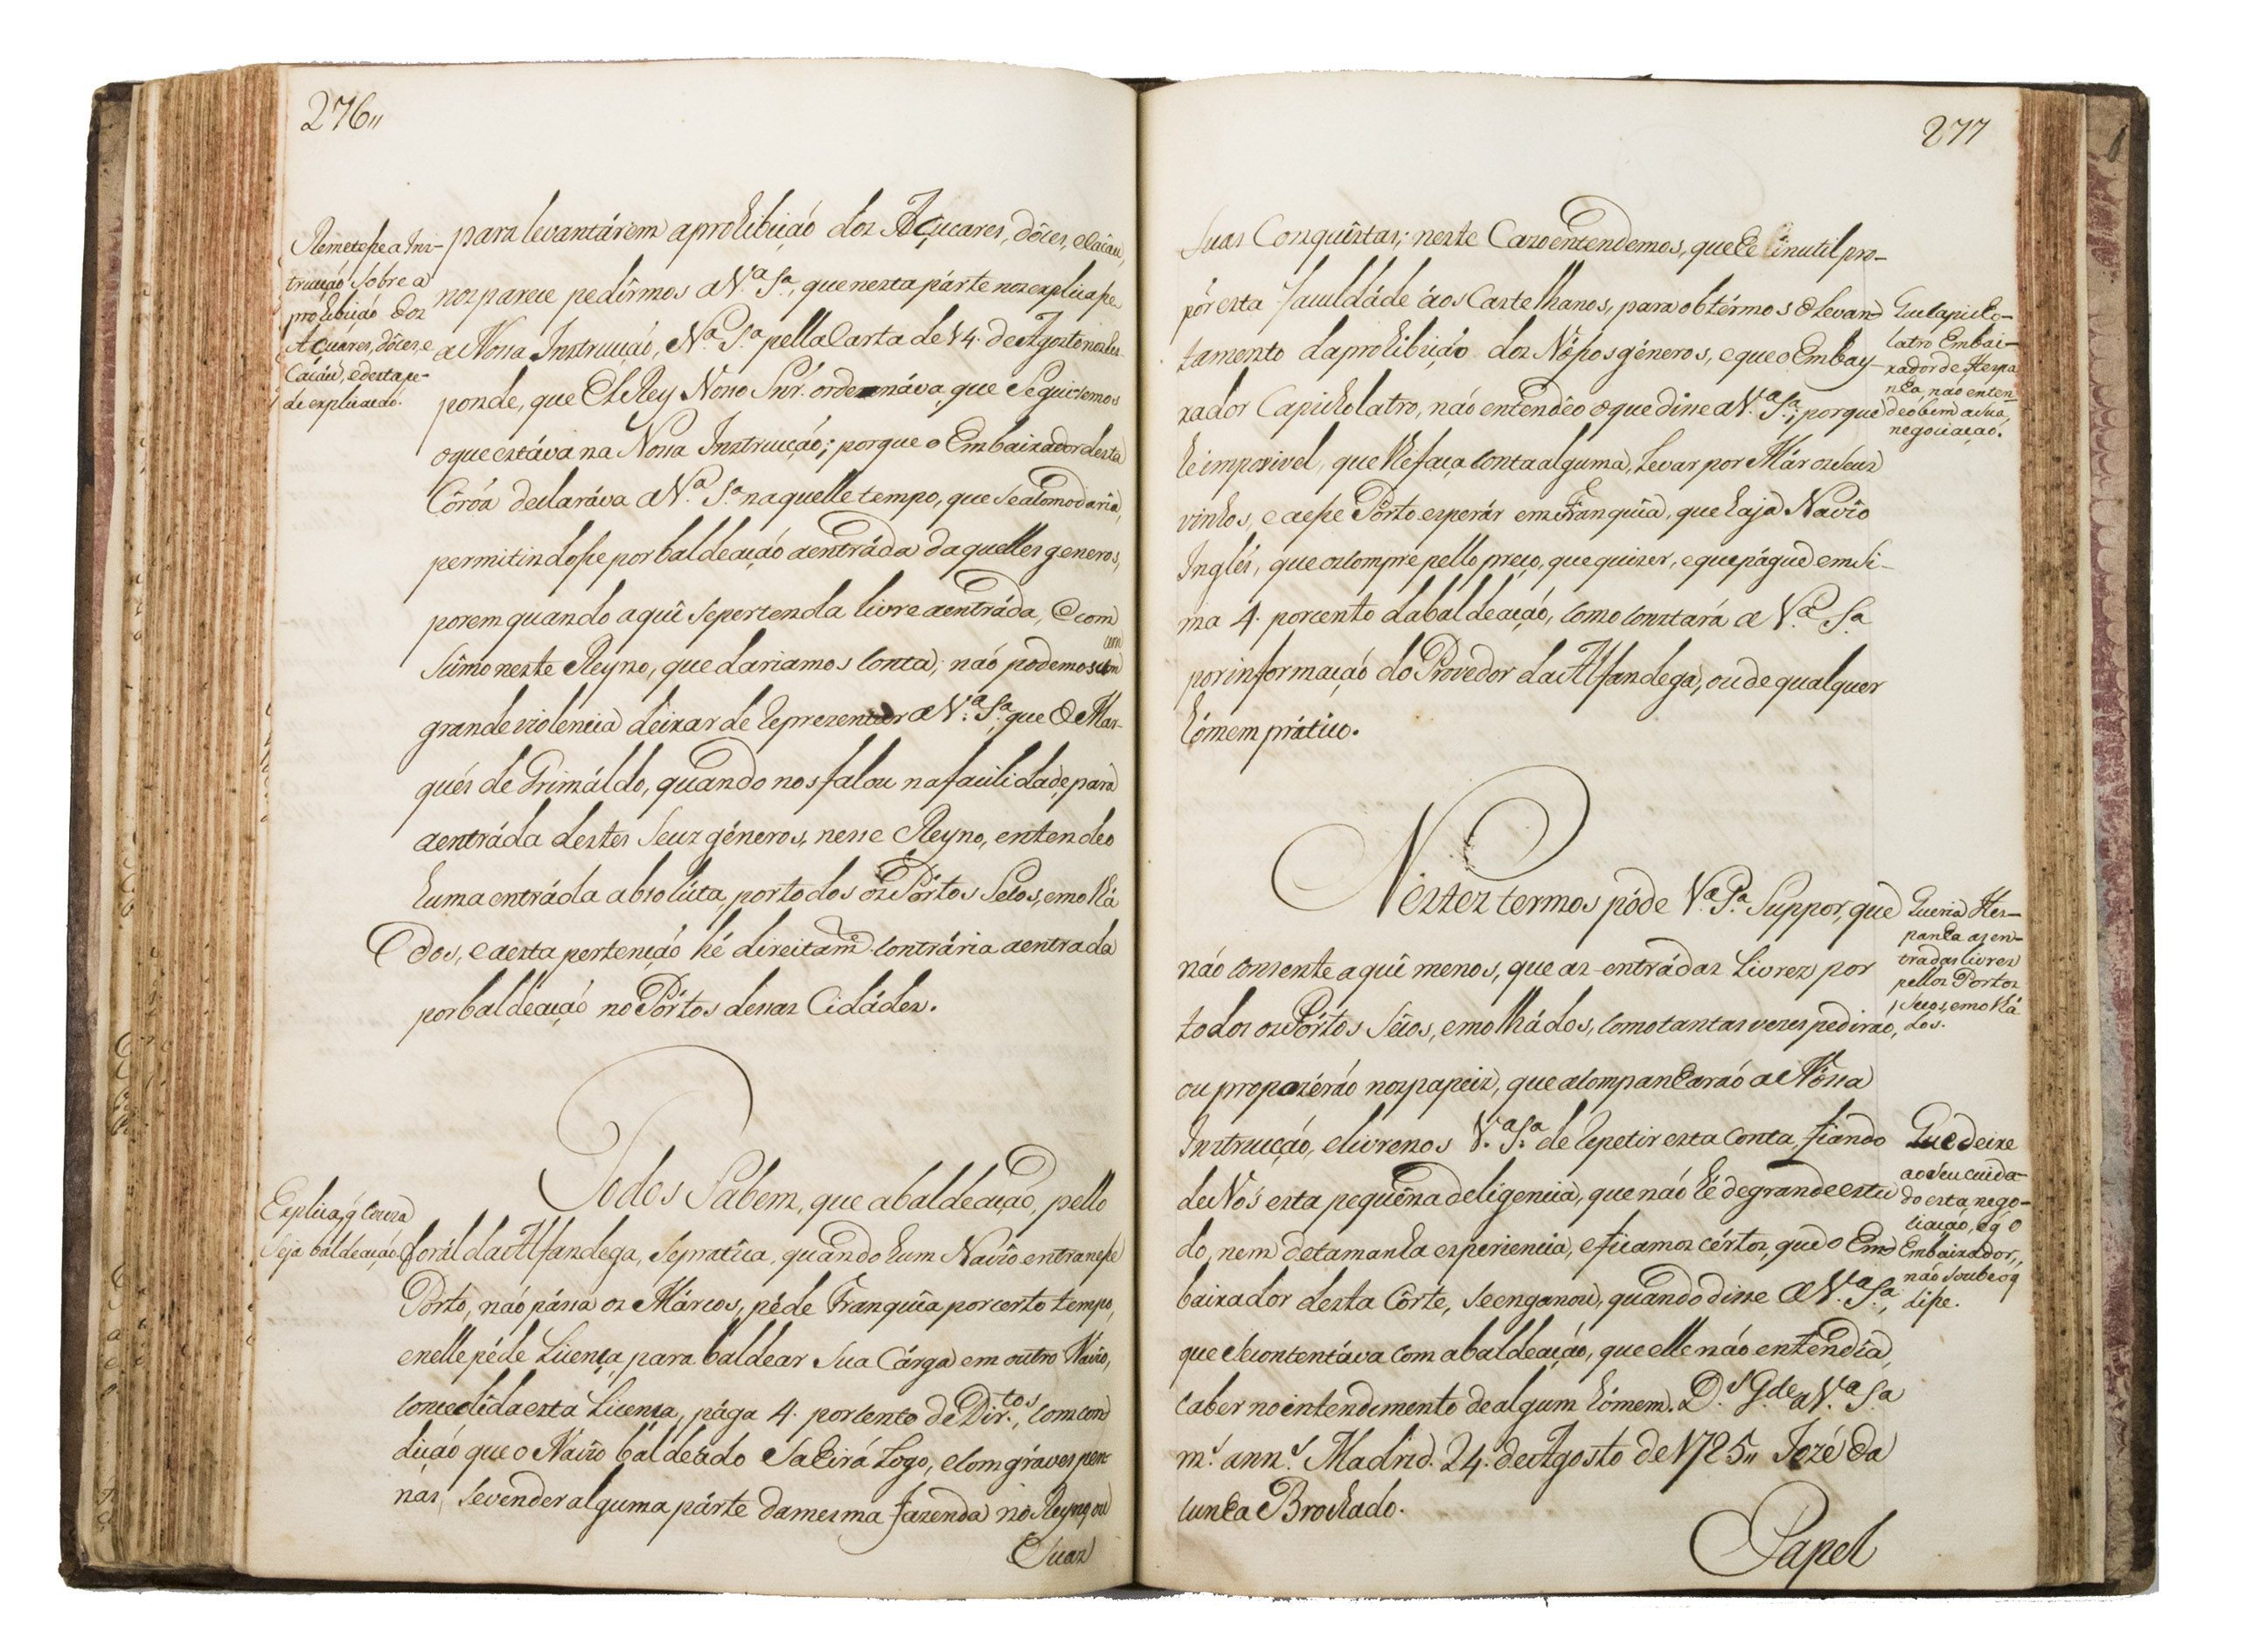 276,,
Remetesse a Ins-
trucçaó sobre a
prohibiçaó dos
Açucares, dôces, e
Cacáu, e desta pe-
de explicacaó.
para levantárem a prohibiçaó dos Açucares, dôces, e Cacau,
nos parece pedîrmos a V.ª S.ª, que nesta párte nos explicasse
a Nossa Instrucçaó, V.ª S.ª pella Carta de 14. de Agosto nos res-
ponde, que ElRey Nosso Snr. ordenáva que Seguissemos
o que estáva na Nossa Instrucçaó; porque o Embaixador desta
Côróa declaráva a V.ª S.ª naquelle tempo, que Seacomodaria,
permitindosse por baldeaçaó aentráda daquelles generos,
porem quando aquî sepertenda livre aentráda, e com
sûmo neste Reyno, que dariamos conta; naó podemos sem
grande violencia deixar de reprezentar a V.ª S.ª, que o Mar-
qués de Grimáldo, quando nos falou nafacilidade, para
aentráda destes Seus géneros, nesse Reyno, entendeo
huma entráda absolúta, por todos os Pórtos Secos, emolhá
dos, e aesta pertençaó hé direitam.e contrária aentrada
por baldeaçaó no Pórtos dessas Cidádes.
Explica, q̃ couza
Seja baldeaçaó.
Todos Sabem, que abaldeaçaó, pello
forál da Alfandega, sepratîca, quando hum Navîo entranesse
Pórto, naó pássa os Márcos, péde Franquîa porcerto tempo,
enelle péde Licença para baldear Sua Cárga em outro Navîo,
concedida esta Licença, pága 4. porcento de Dir.tos, com con
diçaó que o Navîo baldeádo Sahirá Logo, e com gráves pen-
nas, Sevender alguma párte damesma fazenda no Reyno, ou
Suas
277
Suas Conquîstas; neste Caso entendemos, que he inutil pro-
pôr esta faculdáde áos Castelhanos, para obtérmos o Levan
tamento daprohibiçaó dos Nóssos géneros, e que o Embay-
xador Capicholatro, naó entendêo o que disse a V.ª S.ª; porque
he impossivel, que lhefaça conta alguma, Levar por Már os Seus
vinhos, e aesse Pôrto esperár em Franquîa, que haja Navîo
Inglés, que os compre pello preço, que quizer, e que págue em si-
ma 4. porcento da baldeaçaó, como constará a V.ª S.ª
por informaçaó do Provedor da Alfandega, ou de qualquer
hómem prático.
Que Capicho-
latro Embai-
xador de Hespa
nha, naó enten-
deo bem a Sua
negociaçaó.
Nestes termos póde V.ª S.ª Suppor, que
náo consente aquî menos, que as entrádas Livres por
todos os Pórtos Sêcos, emolhádos, como tantas vezes pediraó,
ou propozéráo nos papeis, que acompanharaó a Nóssa
Instrucçaó, e livrenos V.ª S.ª de repetir esta Conta, fiando
de Nós esta pequêna deligencia, que naó hé de grande estu
do, nem de tamanha esperiencia, e ficamos cértos, que o Em
baixador desta Côrte, Seenganou, quando disse a V.ª S.ª,
que Secontentáva com abaldeaçaó, que elle náo entendîa,
caber no intendimento de algum hómem. D.s G.de a V.ª S.ª
m.s ann.s Madrid. 24. de Agosto de 1725,, Jozé da
cunha Brochado.
Papel
Queria Hes-
panha as en-
tradas livres
pellos Portos
Secos, emolhá
dos.
Que deixe
ao Seu cuida-
do esta nego-
ciaçaó, e q̃ o
Embaixador,,
náo Soube o q̃
disse.